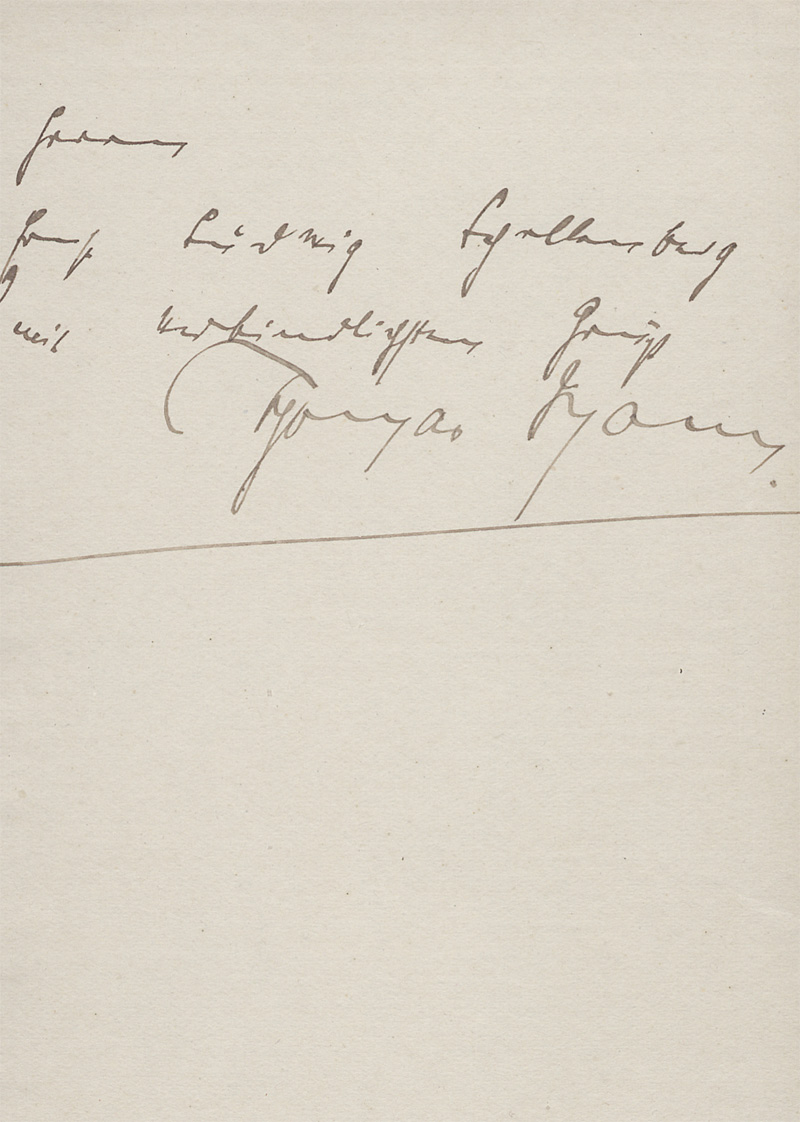 Herrn
Hans Ludwig Schellenberg
mit verbindlichstem Gruß
Thomas Mann.